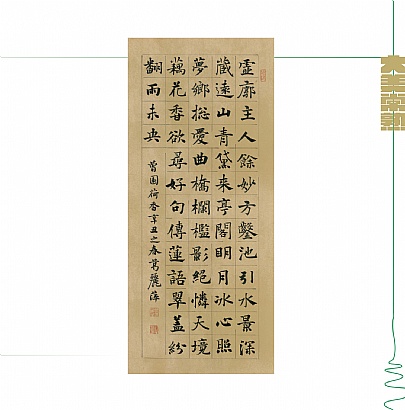 虛廓主人餘妙方鑿池引水景深
藏遠山青黛来亭閣明月冰心照
夢鄉總愛曲橋欄檻影絕憐天境
藕花香欲尋好句傳蓮語翠蓋紛
翻雨未央
曾園荷香辛丑之春葛麗萍
大美常熟